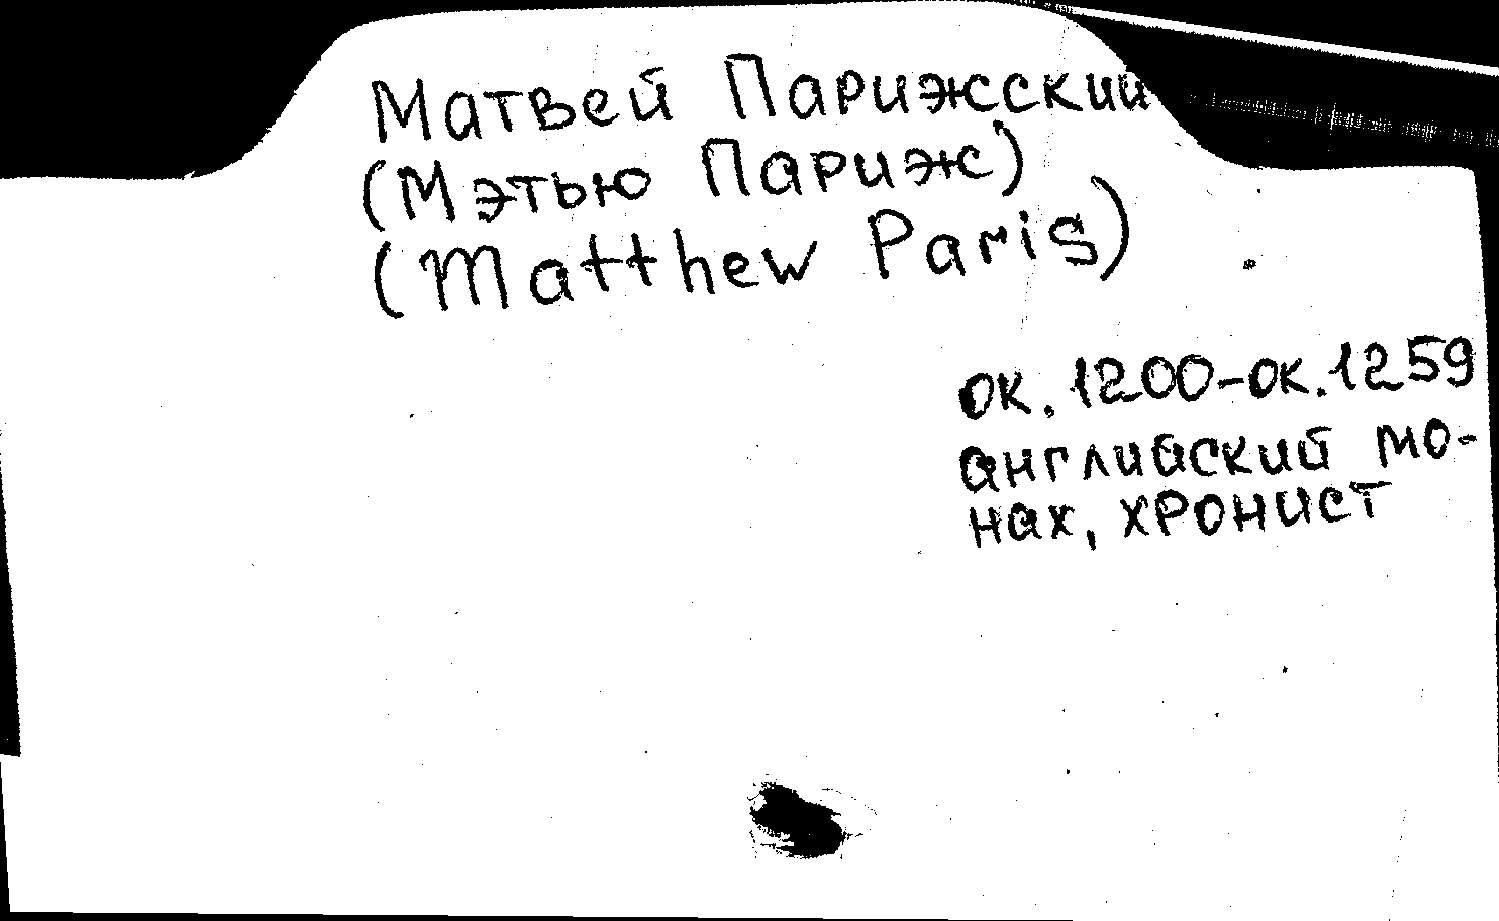 Матвей Парижский
(Мэтью Париж)
(Matthew Paris)
ок. 1200-ок. 1259
английский мо-
нах, хронист